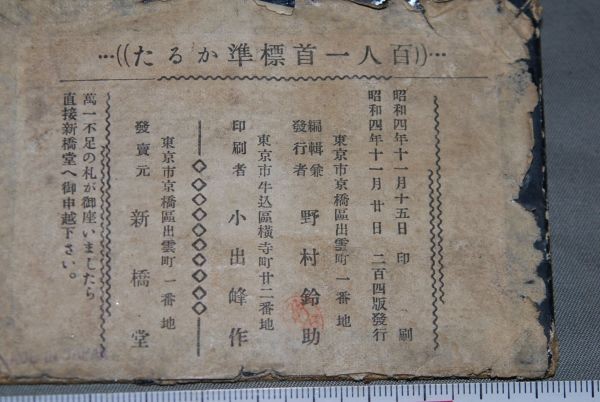 …((百人一首標準かるた))…
昭和四年十一月十五日 印刷
昭和四年十一月廿日 二百四版發行
東京市京橋區出雲町一番地
編輯兼發行者 野村鈴助
東京市牛込區横寺町廿二番地
印刷者 小出峰作
東京市京橋區出雲町一番地
發賣元 新橋堂
萬一不足の札が御座いましたら
直接新橋堂へ御申越下さい。